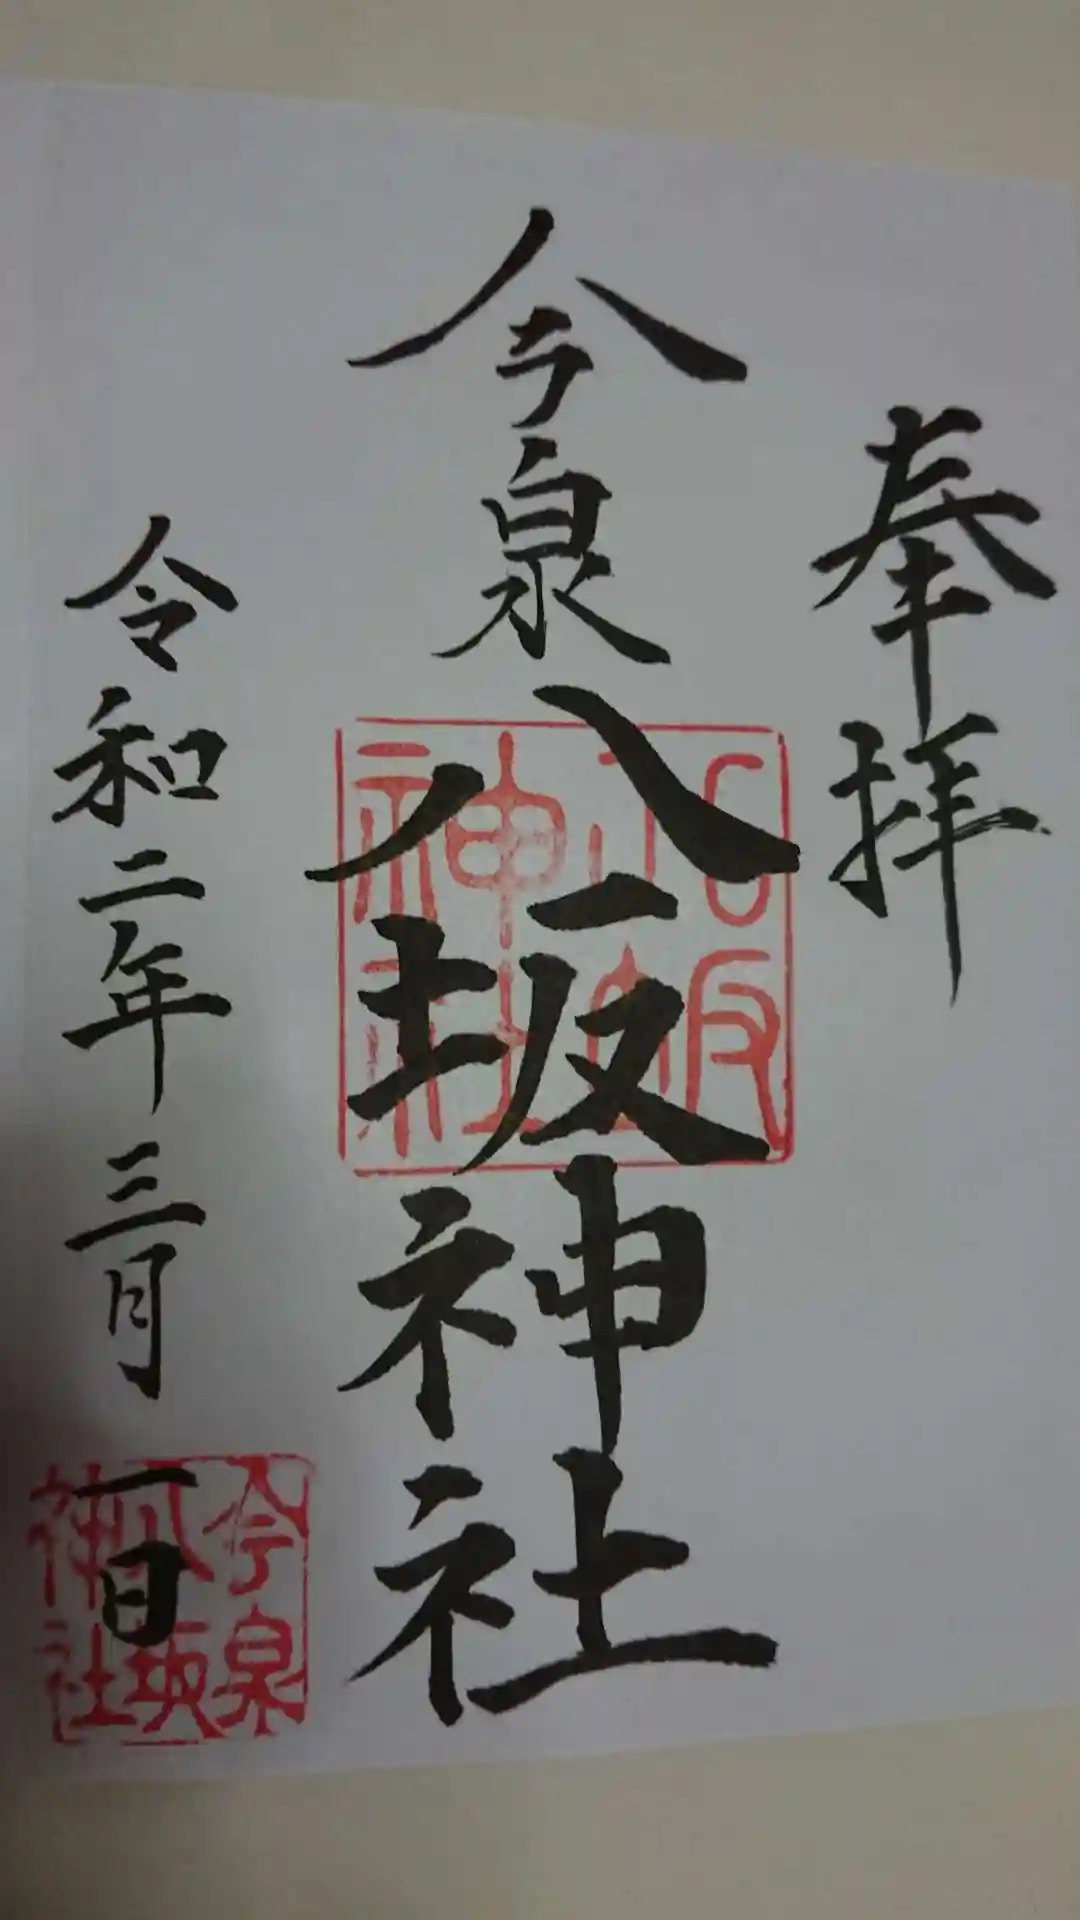 奉拝
今泉八坂神社
八坂神社
令和二年三月一日
今泉八坂神社